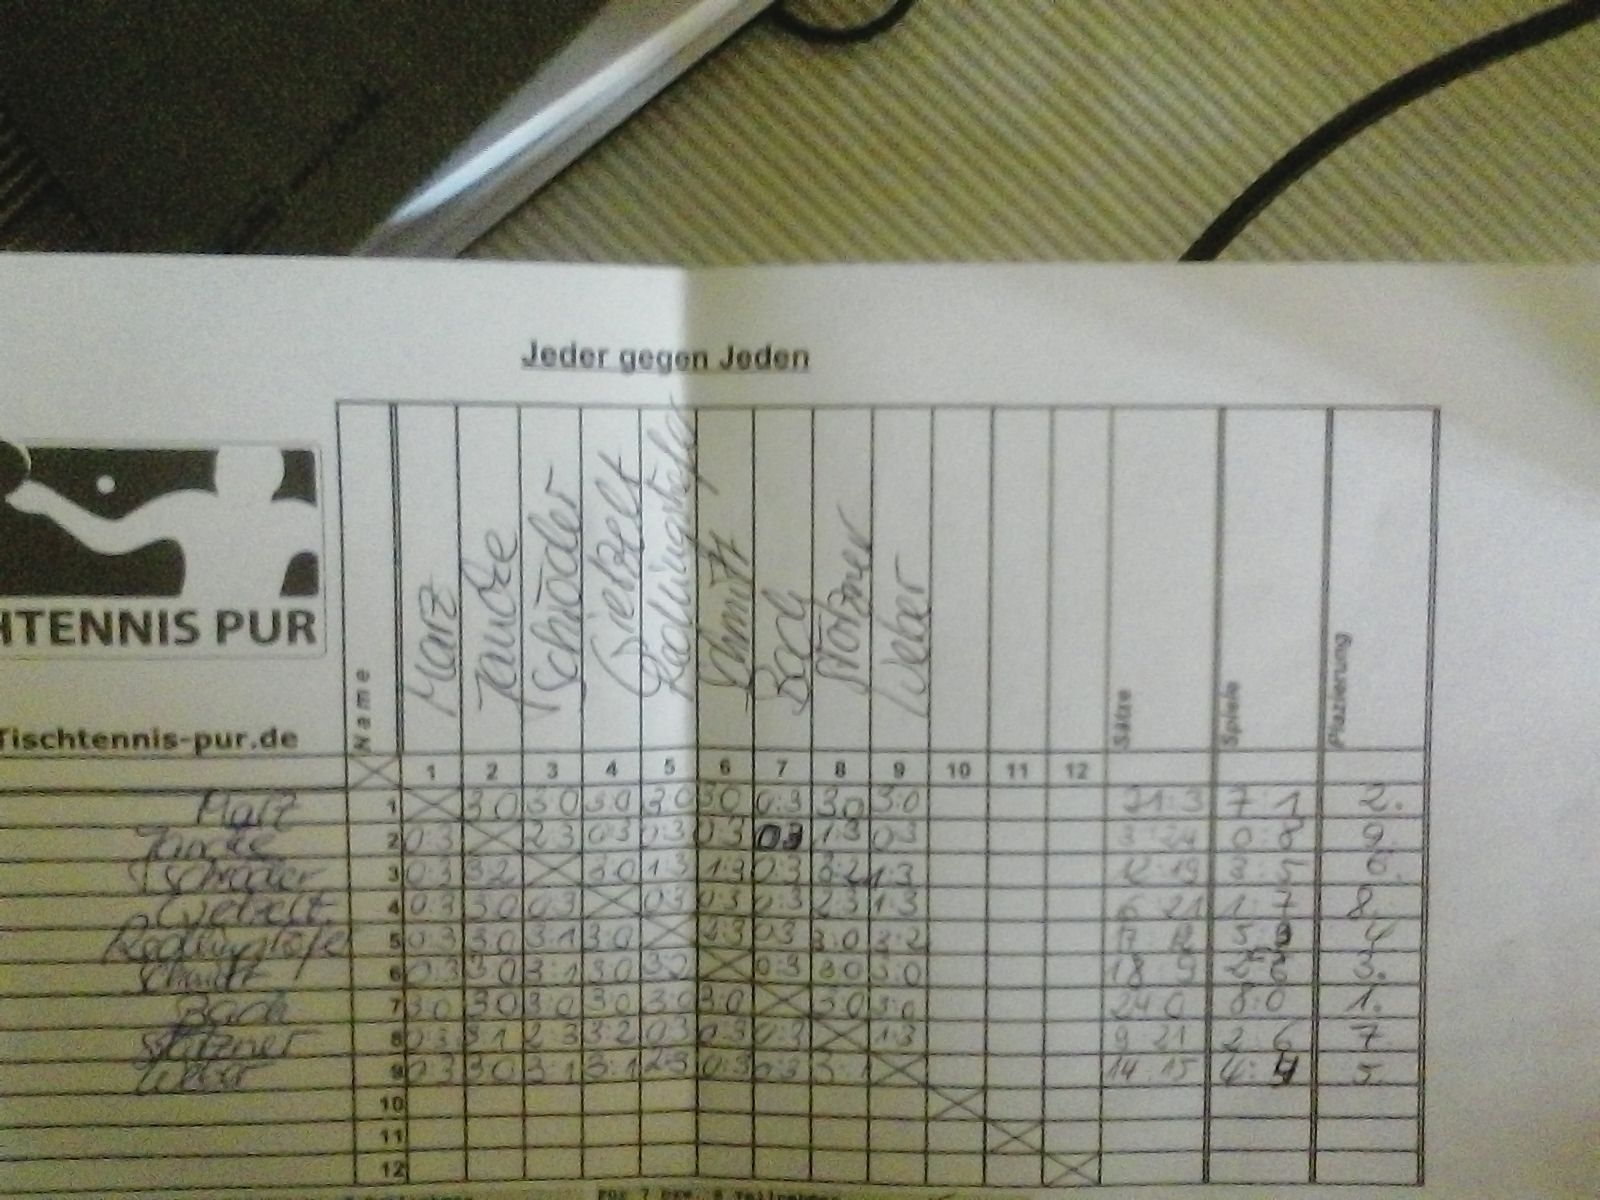 Jeder gegen Jeden
HTENNIS PUR
Tischtennis-pur.de
Name Marz Schröder Schmidt Bach Weber Sätze Spiele Plazierung
1 2 3 4 5 6 7 8 9 10 11 12
Marz 1 3:0 3:0 3:0 3:0 3:0 0:3 3:0 3:0 21:3 7:1 2.
2 0:3 2:3 0:3 0:3 0:3 0:3 1:3 0:3 3:24 0:8 9.
Schröder 3 0:3 3:2 3:0 1:3 1:3 0:3 3:2 1:3 12:19 3:5 6.
4 0:3 3:0 0:3 0:3 0:3 0:3 2:3 1:3 6:21 1:7 8.
5 0:3 3:0 3:1 3:0 2:3 0:3 3:0 3:2 17:12 5:3 4
Schmidt 6 0:3 3:0 3:1 3:0 3:2 0:3 3:0 3:0 18:9 3.
Bach 7 3:0 3:0 3:0 3:0 3:0 3:0 3:0 3:0 24:0 8:0 1.
8 0:3 3:1 2:3 3:2 0:3 0:3 0:3 1:3 9:21 2:6 7
Weber 9 0:3 3:0 3:1 3:1 2:3 0:3 0:3 3:1 14:15 4:4 5.
10
11
12